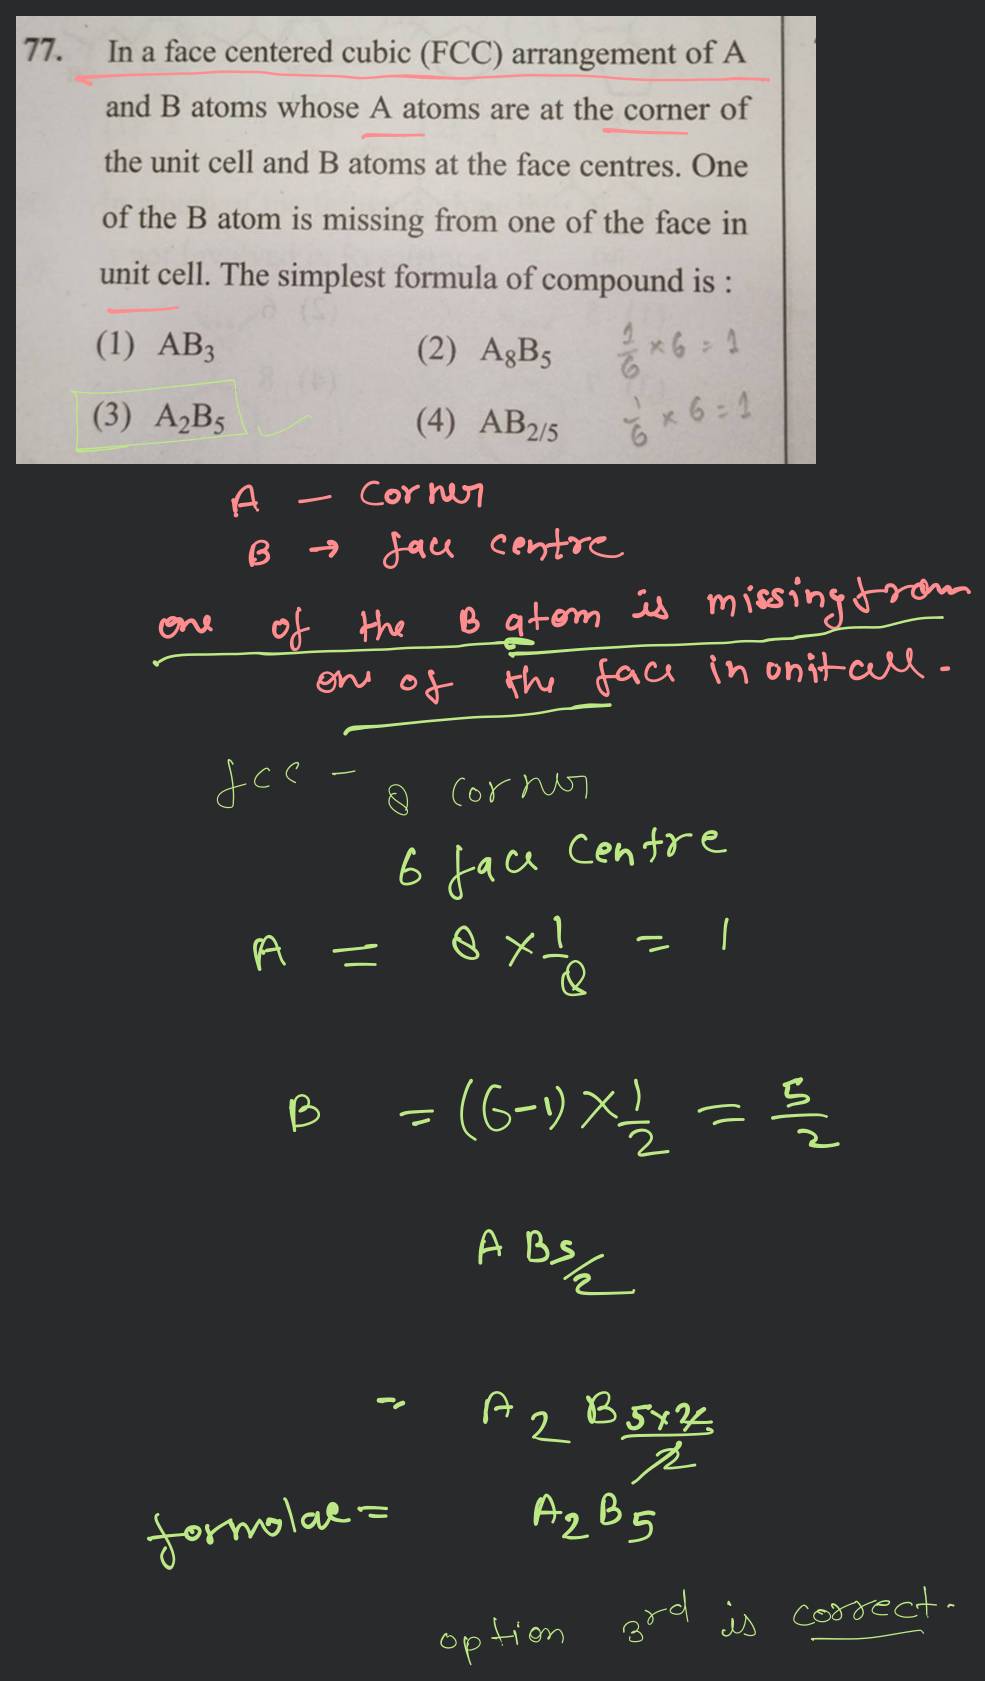 77. In a face centered cubic (FCC) arrangement of A
and B atoms whose A atoms are at the corner of
the unit cell and B atoms at the face centres. One
of the B atom is missing from one of the face in
unit cell. The simplest formula of compound is :
(1) AB₃ (2) A₈B₅ 1/6 × 6 = 1
(3) A₂B₅ (4) AB₂/₅ 1/6 × 6 = 1
A — Corner
B → face centre
one of the B atom is missing from
one of the face in unit cell.
fcc - 8 corner
6 face Centre
A = 8 × 1/8 = 1
B = (6-1) × 1/2 = 5/2
A B5/2
= A2 B 5×2/2
formulae = A2 B5
option 3rd is correct.